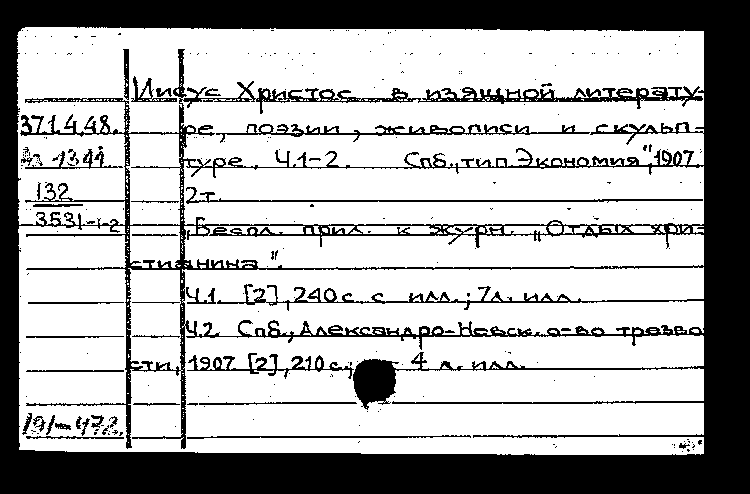 Иисус Христос в изящной литерату-
37.1.4.48. ре, поэзии, живописи и скульп-
туре. Ч.1-2. Спб., "тип. Экономия", 1907.
132 2т.
3531-1-2 „Беспл. прил. к журн. „Отдых хри-
стианина".
Ч.1. [2], 240 с. с илл.; 7л. илл.
Ч.2. Спб., Александро-Невск. о-во трезво
сти, 1907. [2], 210 с.; 4 л. илл.
191-472.